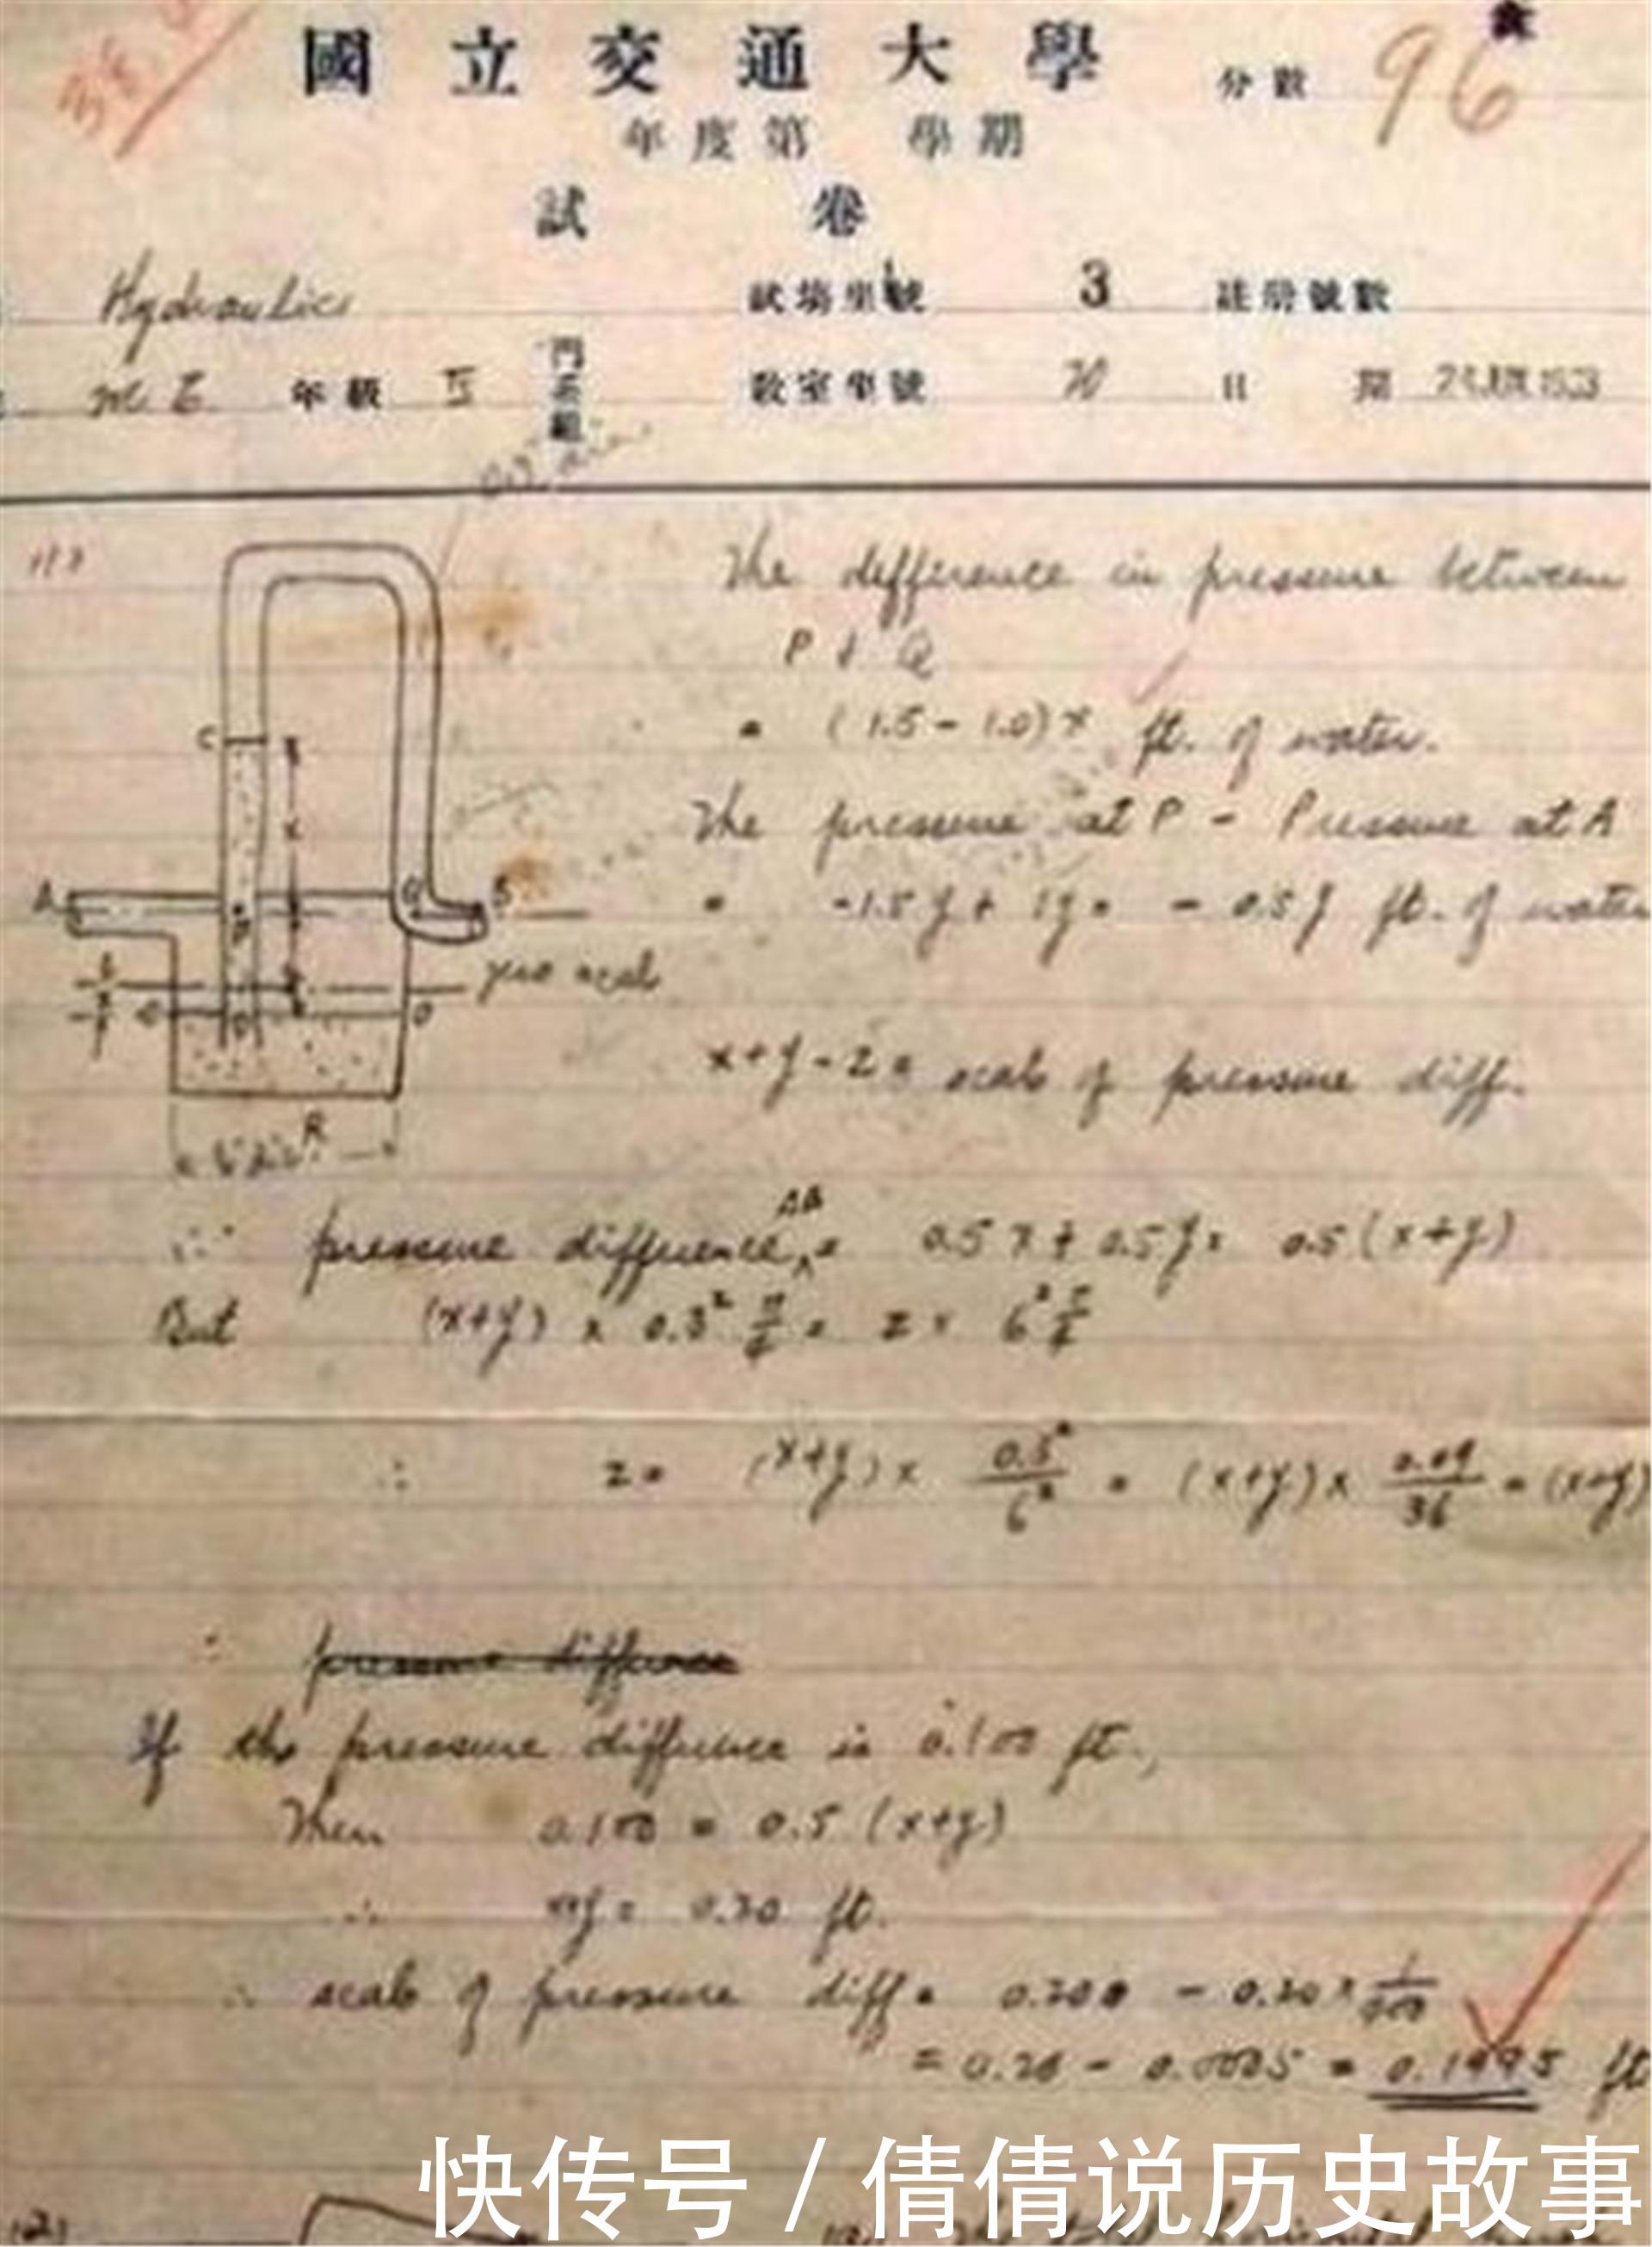 國立交通大學
分數 96
年度第 學期
試卷
Hydraulics 試場坐號 3 註册號數
M E 年級 II 門系組 教室坐號 日期
The difference in pressure between
P & Q
= (1.5 - 1.0)x ft. of water.
The pressure at P - Pressure at A
= -1.5y + 1y = - 0.5y ft. of water
C
x
A P Q B
O O
R
x+y-z = scale of pressure diff.
∴ pressure difference AB = 0.5x + 0.5y = 0.5(x+y)
But (x+y) x 0.3² π/4 = z x 6² π/4
∴ z = (x+y) x 0.3²/6² = (x+y) x 0.09/36 = (x+y)
pressure difference
If the pressure difference is 0.100 ft.,
Then 0.100 = 0.5 (x+y)
∴ x+y = 0.20 ft.
∴ scale of pressure diff = 0.200 - 0.20 x 1/400
= 0.20 - 0.0005 = 0.1995 ft
快传号 / 倩倩说历史故事
(2)